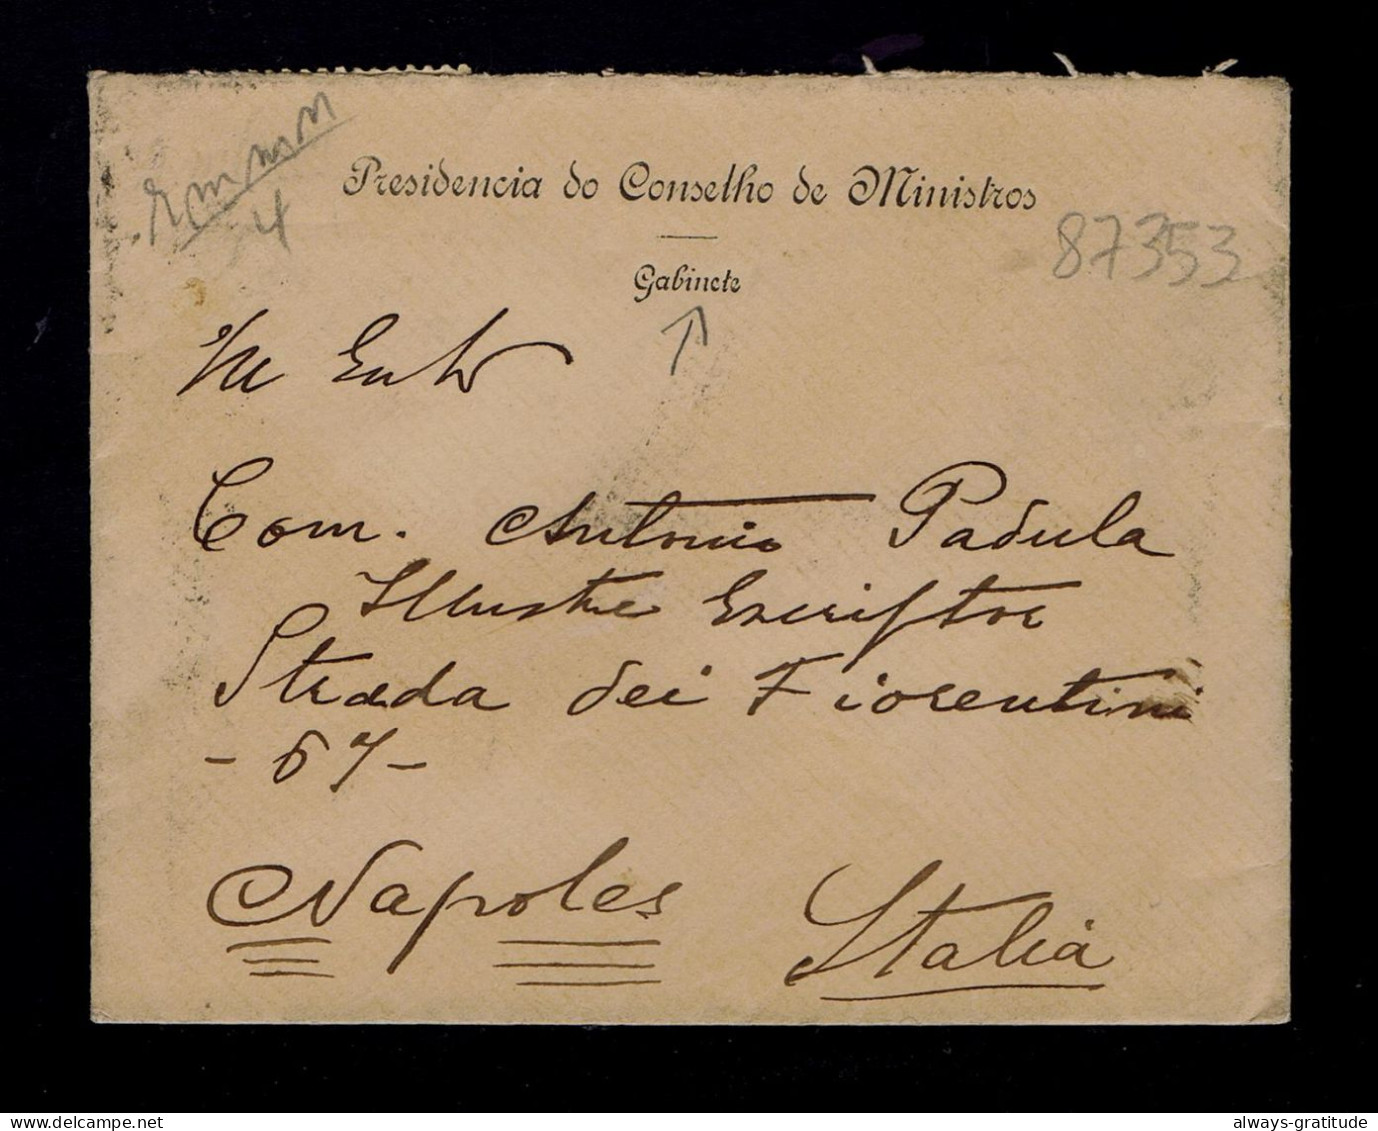 Presidencia do Conselho de Ministros
Gabinete
87353
4
Com. Antonio Padula
Illustre Escriptor
Strada dei Fiorentini
- 67 -
Napoles Italia
delcampe.net
always-gratitude